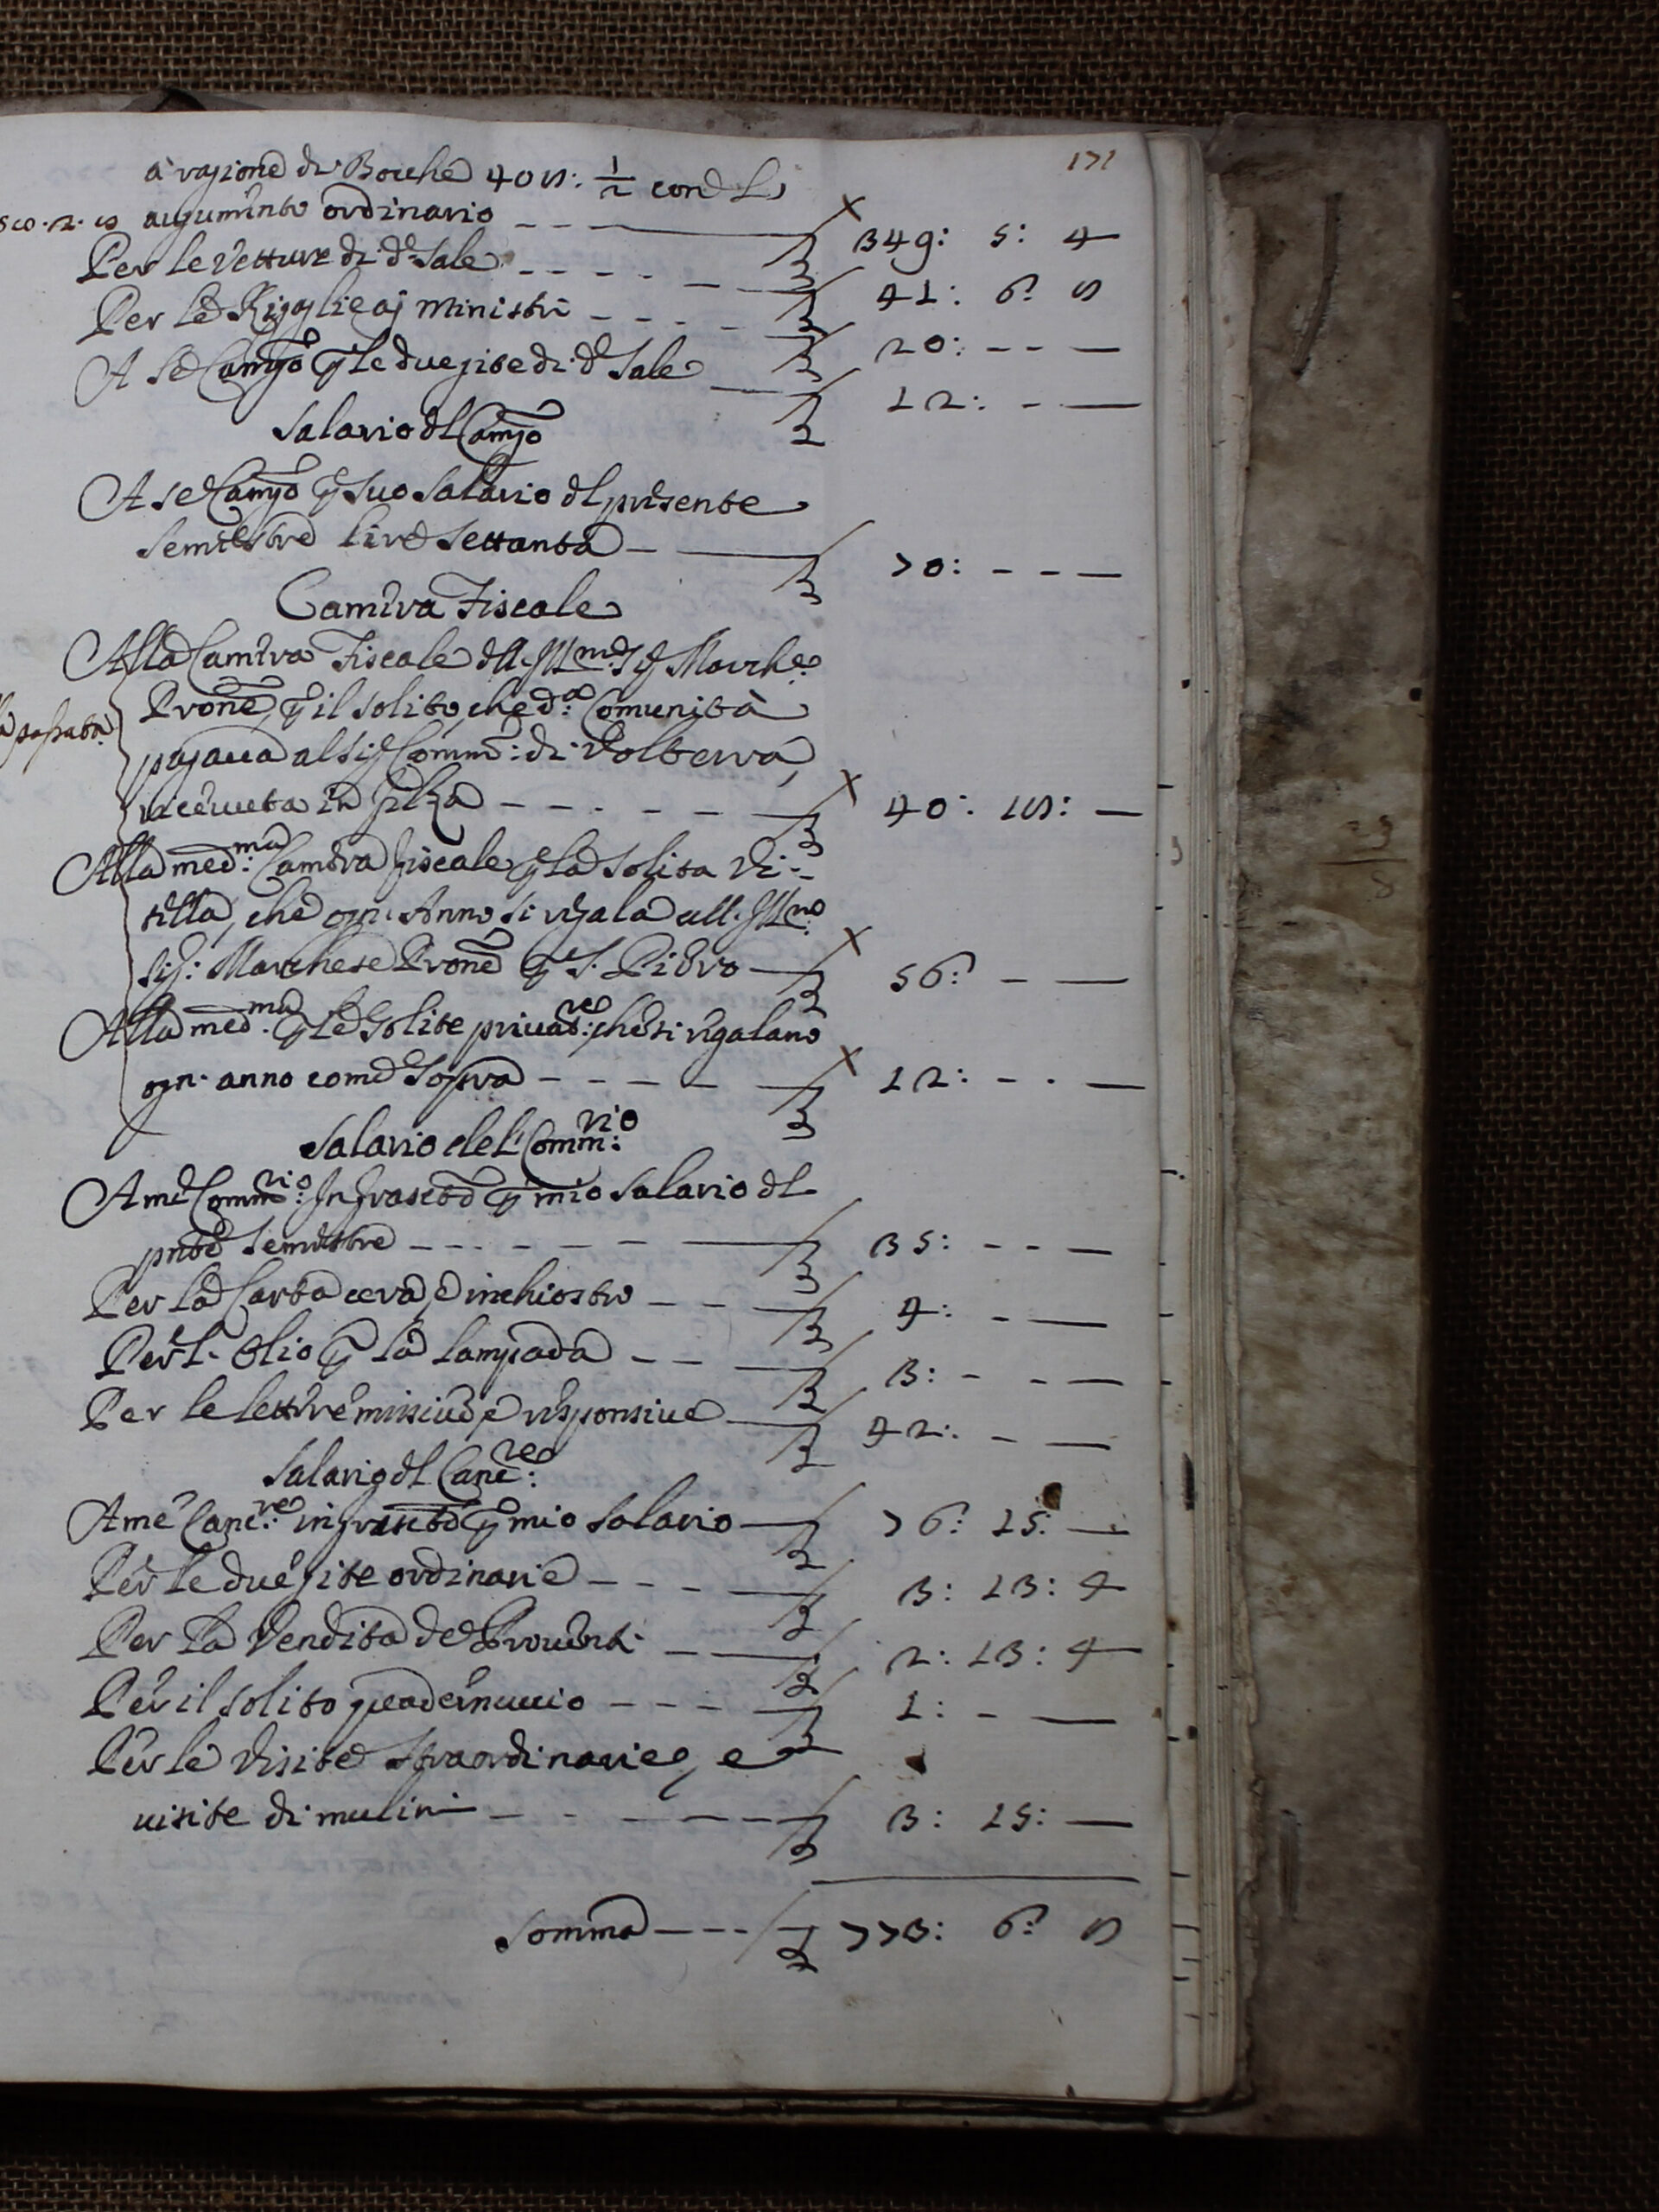 171
à ragione di Bocche 408: 1/2 con L'
augumento ordinario — 349: 5: 4
Per le Vetture di d.º Sale — 41: 6: 8
Per le Rigaglie aj Ministri — 20: — —
A Se Camgō ꝑ le due gite di d.º Sale — 12: — —
Salario dl Camgō
A se Camgō ꝑ suo Salario dl presente
Semestre lire Settanta — 70: — —
Camera Fiscale
Alla Camera Fiscale dll. Ill.mo Sig Marche.
Pr̄one, ꝑ il solito, che d.ª Comunità
pagaua al Sig Comm: di Volterra,
riceuuta in filza — 40: 18: —
Alla med.ma Camera fiscale ꝑ la Solita Vi-
tella, che ogni Anno si regala all. Ill.mo
Sig: Marchese Pr̄one ꝑ S. Pietro — 56: — —
Alla med.ma ꝑ le Solite che si regalano
ogni anno come Sopra — 12: — —
Salario del Comm:rio
A me Comm:rio Infrascto ꝑ mio Salario dl
pnte Semestre — 35: — —
Per la Carta cera, e inchiostro — 4: — —
Per l. Olio ꝑ la lampada — 3: — —
Per le lettere missiue, e risponsiue — 42: — —
Salario dl Canc:re
A me Canc:re infrascto ꝑ mio Salario — 76: 15: —
Per le due gite ordinarie — 3: 13: 4
Per la Vendita de Prouenti — 2: 13: 4
Per il solito quadernuccio — 1: — —
Per le Visite Straordinarie, e
uisite di mulini — 3: 15: —
Somma — 773: 6: 8